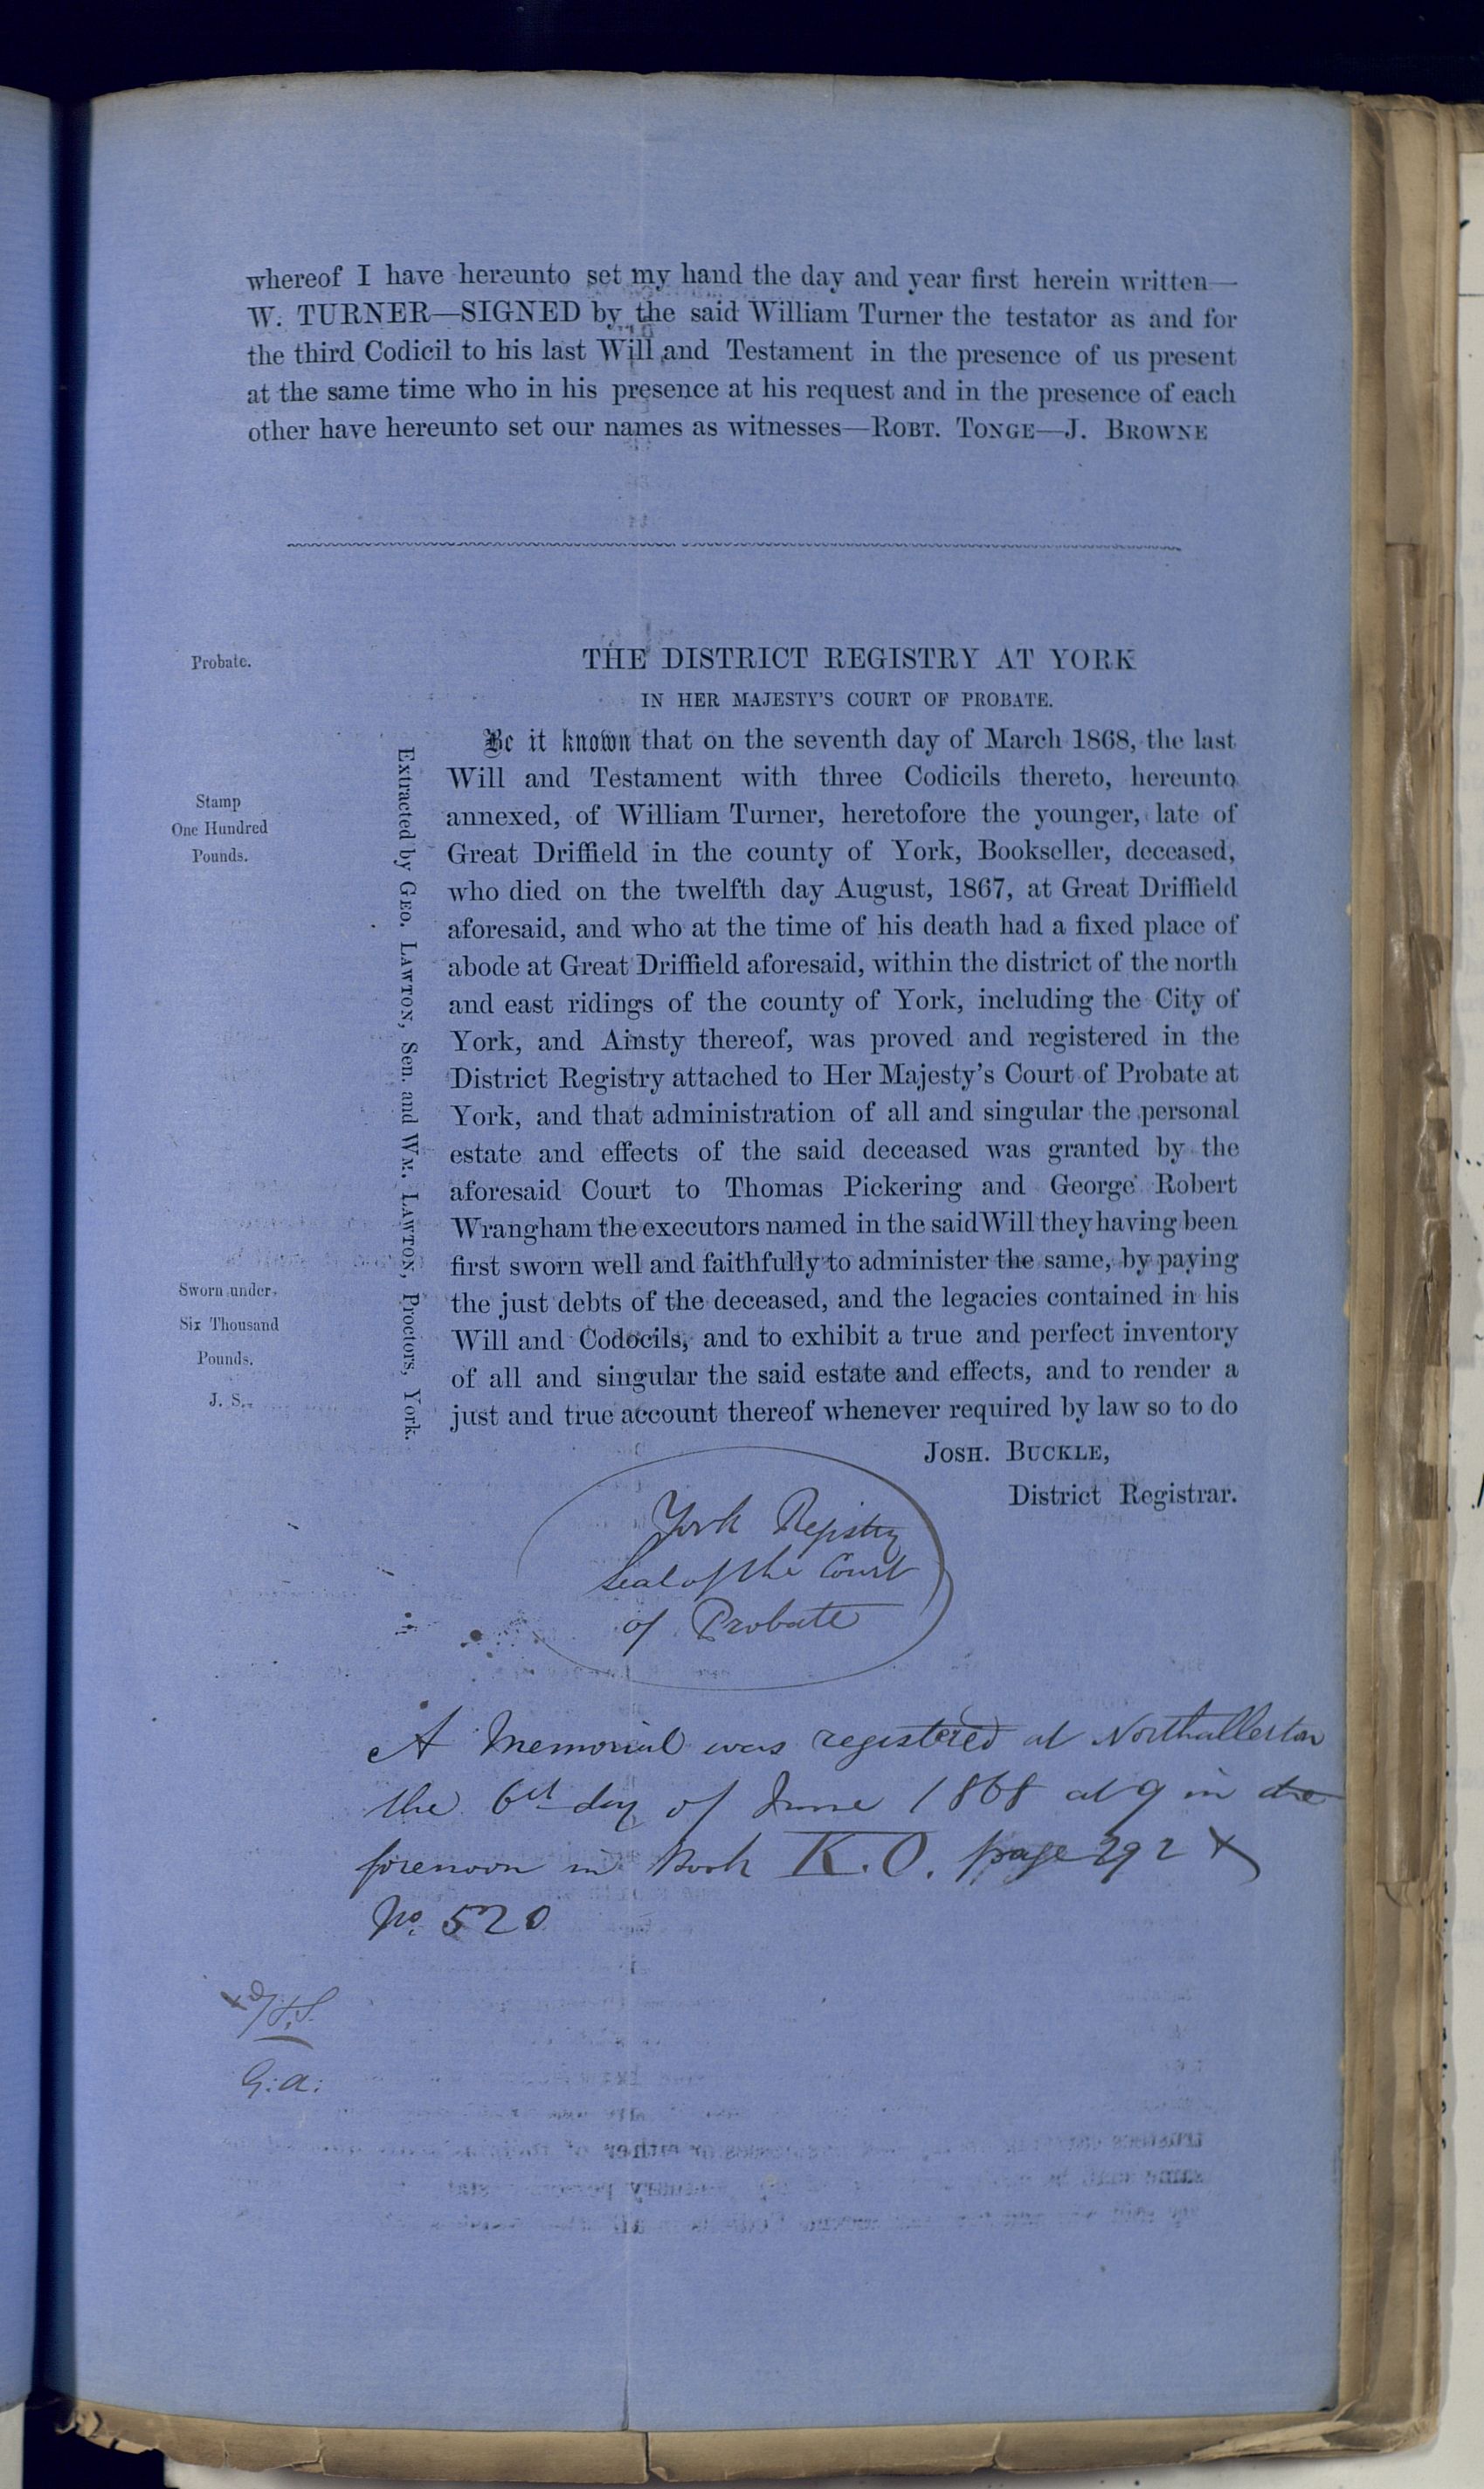 whereof I have hereunto set my hand the day and year first herein written—
W. TURNER—SIGNED by the said William Turner the testator as and for
the third Codicil to his last Will and Testament in the presence of us present
at the same time who in his presence at his request and in the presence of each
other have hereunto set our names as witnesses—ROBT. TONGE—J. BROWNE
Probate.
THE DISTRICT REGISTRY AT YORK
IN HER MAJESTY'S COURT OF PROBATE.
Stamp
One Hundred
Pounds.
Sworn under
Six Thousand
Pounds.
J. S.
Extracted by GEO. LAWTON, Sen. and WM. LAWTON, Proctors, York.
Be it known that on the seventh day of March 1868, the last
Will and Testament with three Codicils thereto, hereunto
annexed, of William Turner, heretofore the younger, late of
Great Driffield in the county of York, Bookseller, deceased,
who died on the twelfth day August, 1867, at Great Driffield
aforesaid, and who at the time of his death had a fixed place of
abode at Great Driffield aforesaid, within the district of the north
and east ridings of the county of York, including the City of
York, and Ainsty thereof, was proved and registered in the
District Registry attached to Her Majesty's Court of Probate at
York, and that administration of all and singular the personal
estate and effects of the said deceased was granted by the
aforesaid Court to Thomas Pickering and George Robert
Wrangham the executors named in the said Will they having been
first sworn well and faithfully to administer the same, by paying
the just debts of the deceased, and the legacies contained in his
Will and Codocils, and to exhibit a true and perfect inventory
of all and singular the said estate and effects, and to render a
just and true account thereof whenever required by law so to do
JOSH. BUCKLE,
District Registrar.
York Registry
Seal of the Court
of Probate
A Memorial was registered at Northallerton
the 6th day of June 1868 at 9 in the
forenoon in Book K.O. page 292 &
No. 520
G: a: